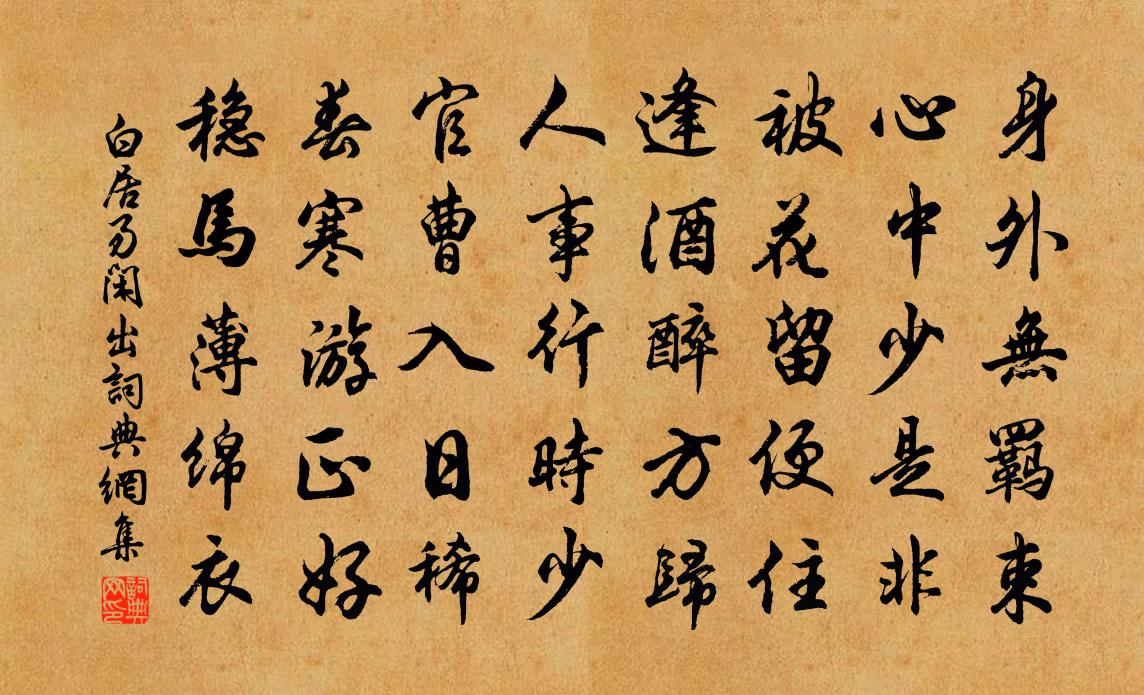 身外無羈束
心中少是非
被花留便住
逢酒醉方歸
人事行時少
官曹入日稀
春寒游正好
穏馬薄綿衣
白居易閑出詞典網集
詞典
网印